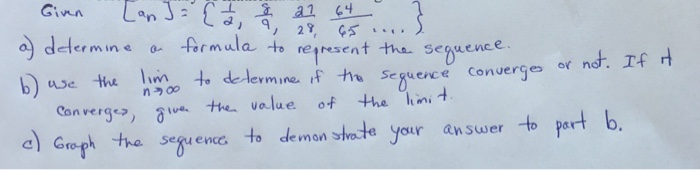 Given [an] = { 1/2, 8/9, 27/28, 64/65 .... }
a) determine a formula to represent the sequence.
b) use the lim n→∞ to determine if the sequence converges or not. If it
converges, give the value of the limit.
c) Graph the sequence to demonstrate your answer to part b.